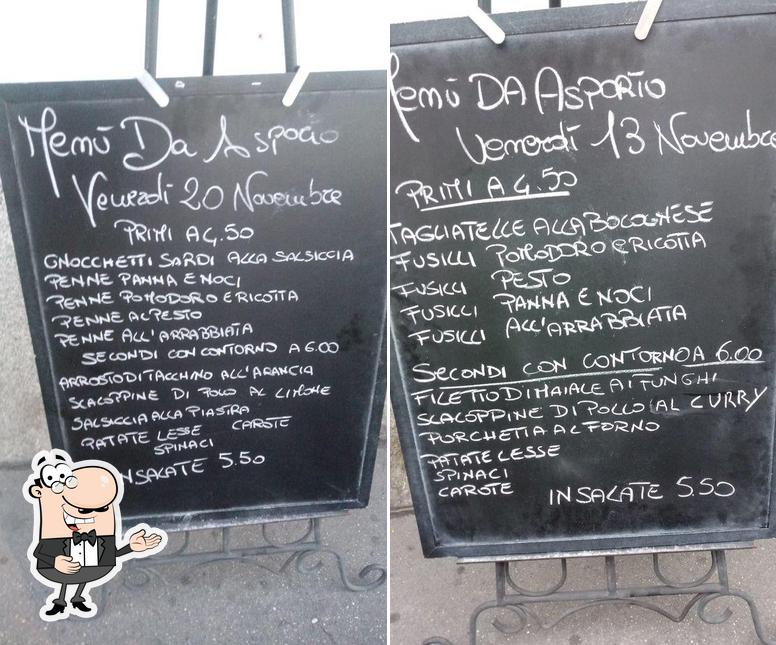 Menù Da Asporto
Venerdì 20 Novembre
PRIMI A 4.50
GNOCCHETTI SARDI ALLA SALSICCIA
PENNE PANNA E NOCI
PENNE POMODORO E RICOTTA
PENNE AL PESTO
PENNE ALL'ARRABBIATA
SECONDI CON CONTORNO A 6.00
ARROSTO DI TACCHINO ALL'ARANCIA
SCALOPPINE DI POLLO AL LIMONE
SALSICCIA ALLA PIASTRA
PATATE LESSE CAROTE
SPINACI
INSALATE 5.50
Menù DA ASPORTO
Venerdì 13 Novembre
PRIMI A 4.50
TAGLIATELLE ALLA BOLOGNESE
FUSILLI POMODORO E RICOTTA
FUSILLI PESTO
FUSILLI PANNA E NOCI
FUSILLI ALL'ARRABBIATA
SECONDI CON CONTORNO A 6.00
FILETTO DI MAIALE AI FUNGHI
SCALOPPINE DI POLLO AL CURRY
PORCHETTA AL FORNO
PATATE LESSE
SPINACI
CAROTE
INSALATE 5.50